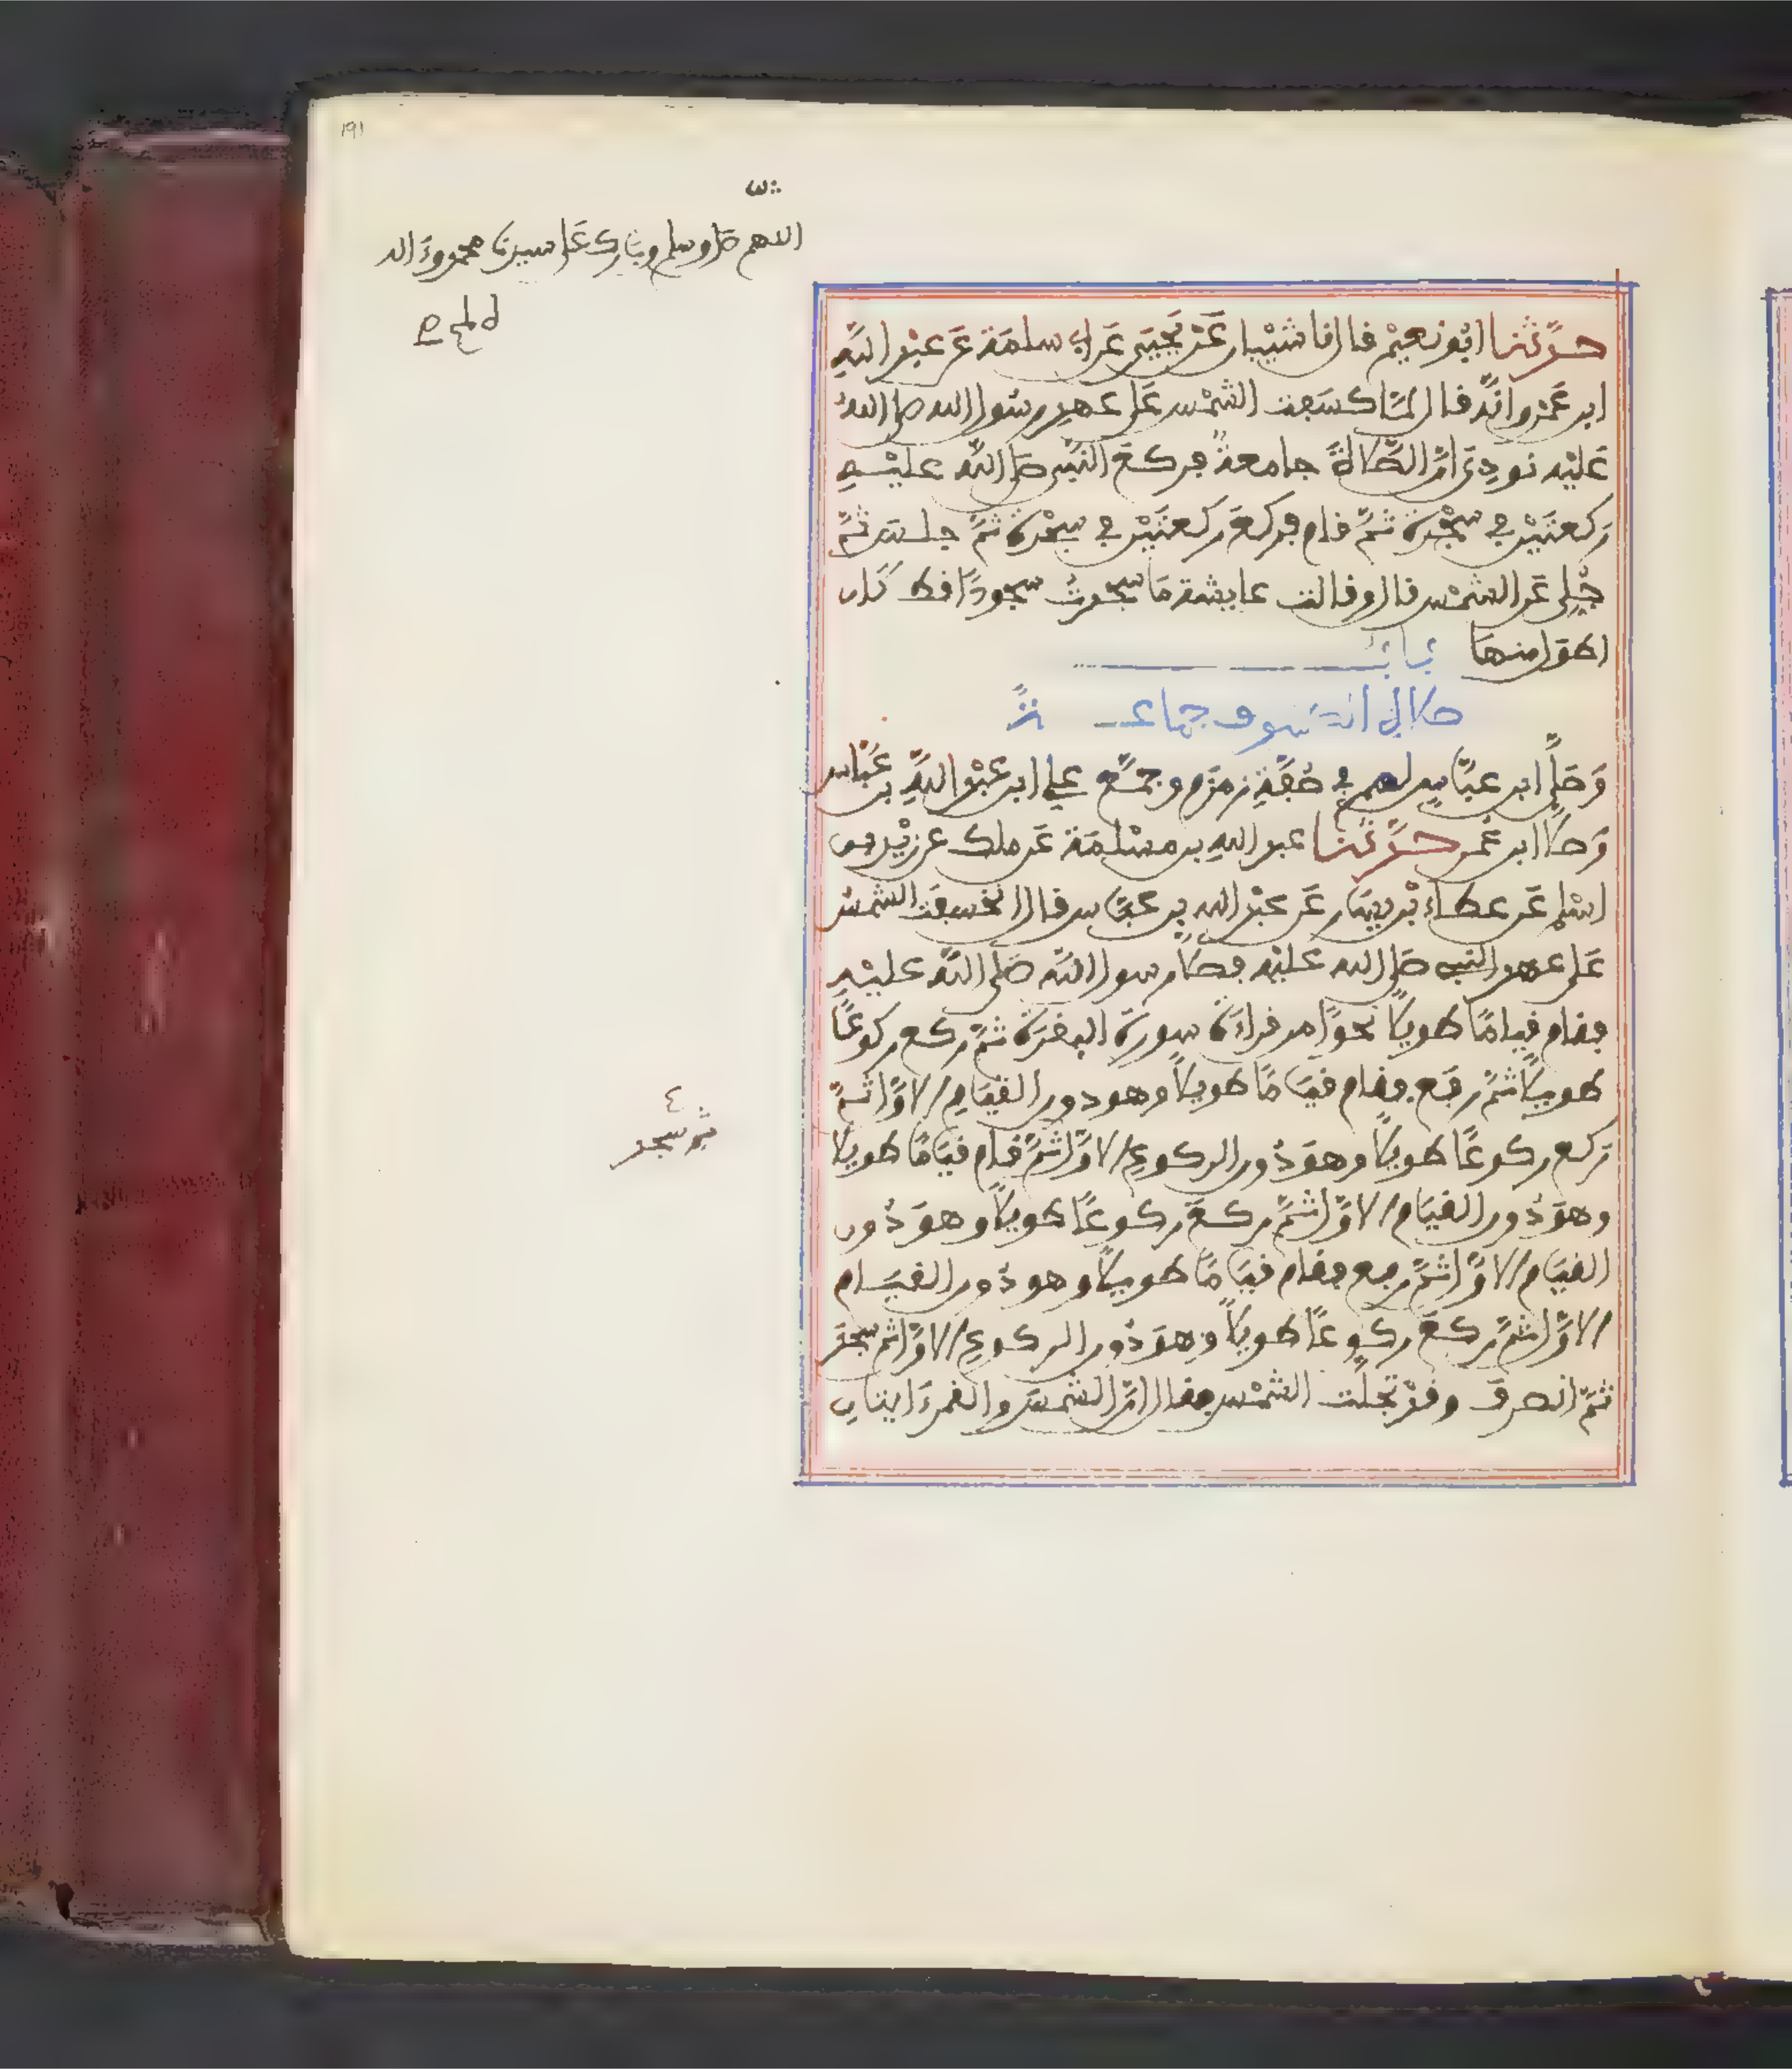 191
اللهم صل وسلم وبارك على سيدنا محمد وءاله
حدثنا ابو نعيم قال نا شيبان عن يحيى عن ابي سلمة عن عبد الله
ابن عمرو انه قال لما كسفت الشمس على عهد رسول الله صلى الله
عليه نودي ان الصلاة جامعة فركع النبي صلى الله عليه
ركعتين في سجدة ثم قام فركع ركعتين في سجدة ثم جلس ثم
جلي عن الشمس قال وقالت عايشة ما سجدت سجودا قط كان
اطول منها باب
صلاة الكسوف جماعة
وصلى ابن عباس لهم في صفة زمزم وجمع علي ابن عبد الله بن عباس
وصلى ابن عمر حدثنا عبد الله بن مسلمة عن ملك عن زيد بن
اسلم عن عطاء بن يسار عن عبد الله بن عباس قال انخسفت الشمس
على عهد النبي صلى الله عليه فصلى رسول الله صلى الله عليه
فقام قياما طويلا نحوا من قراءة سورة البقرة ثم ركع ركوعا
طويلا ثم رفع فقام قياما طويلا وهو دون القيام الاول ثم
ركع ركوعا طويلا وهو دون الركوع الاول ثم قام قياما طويلا
وهو دون القيام الاول ثم ركع ركوعا طويلا وهو دون
القيام الاول ثم رفع فقام قياما طويلا وهو دون القيام
الاول ثم ركع ركوعا طويلا وهو دون الركوع الاول ثم سجد
ثم انصرف وقد تجلت الشمس فقال ان الشمس والقمر ءايتان
ثم سجد